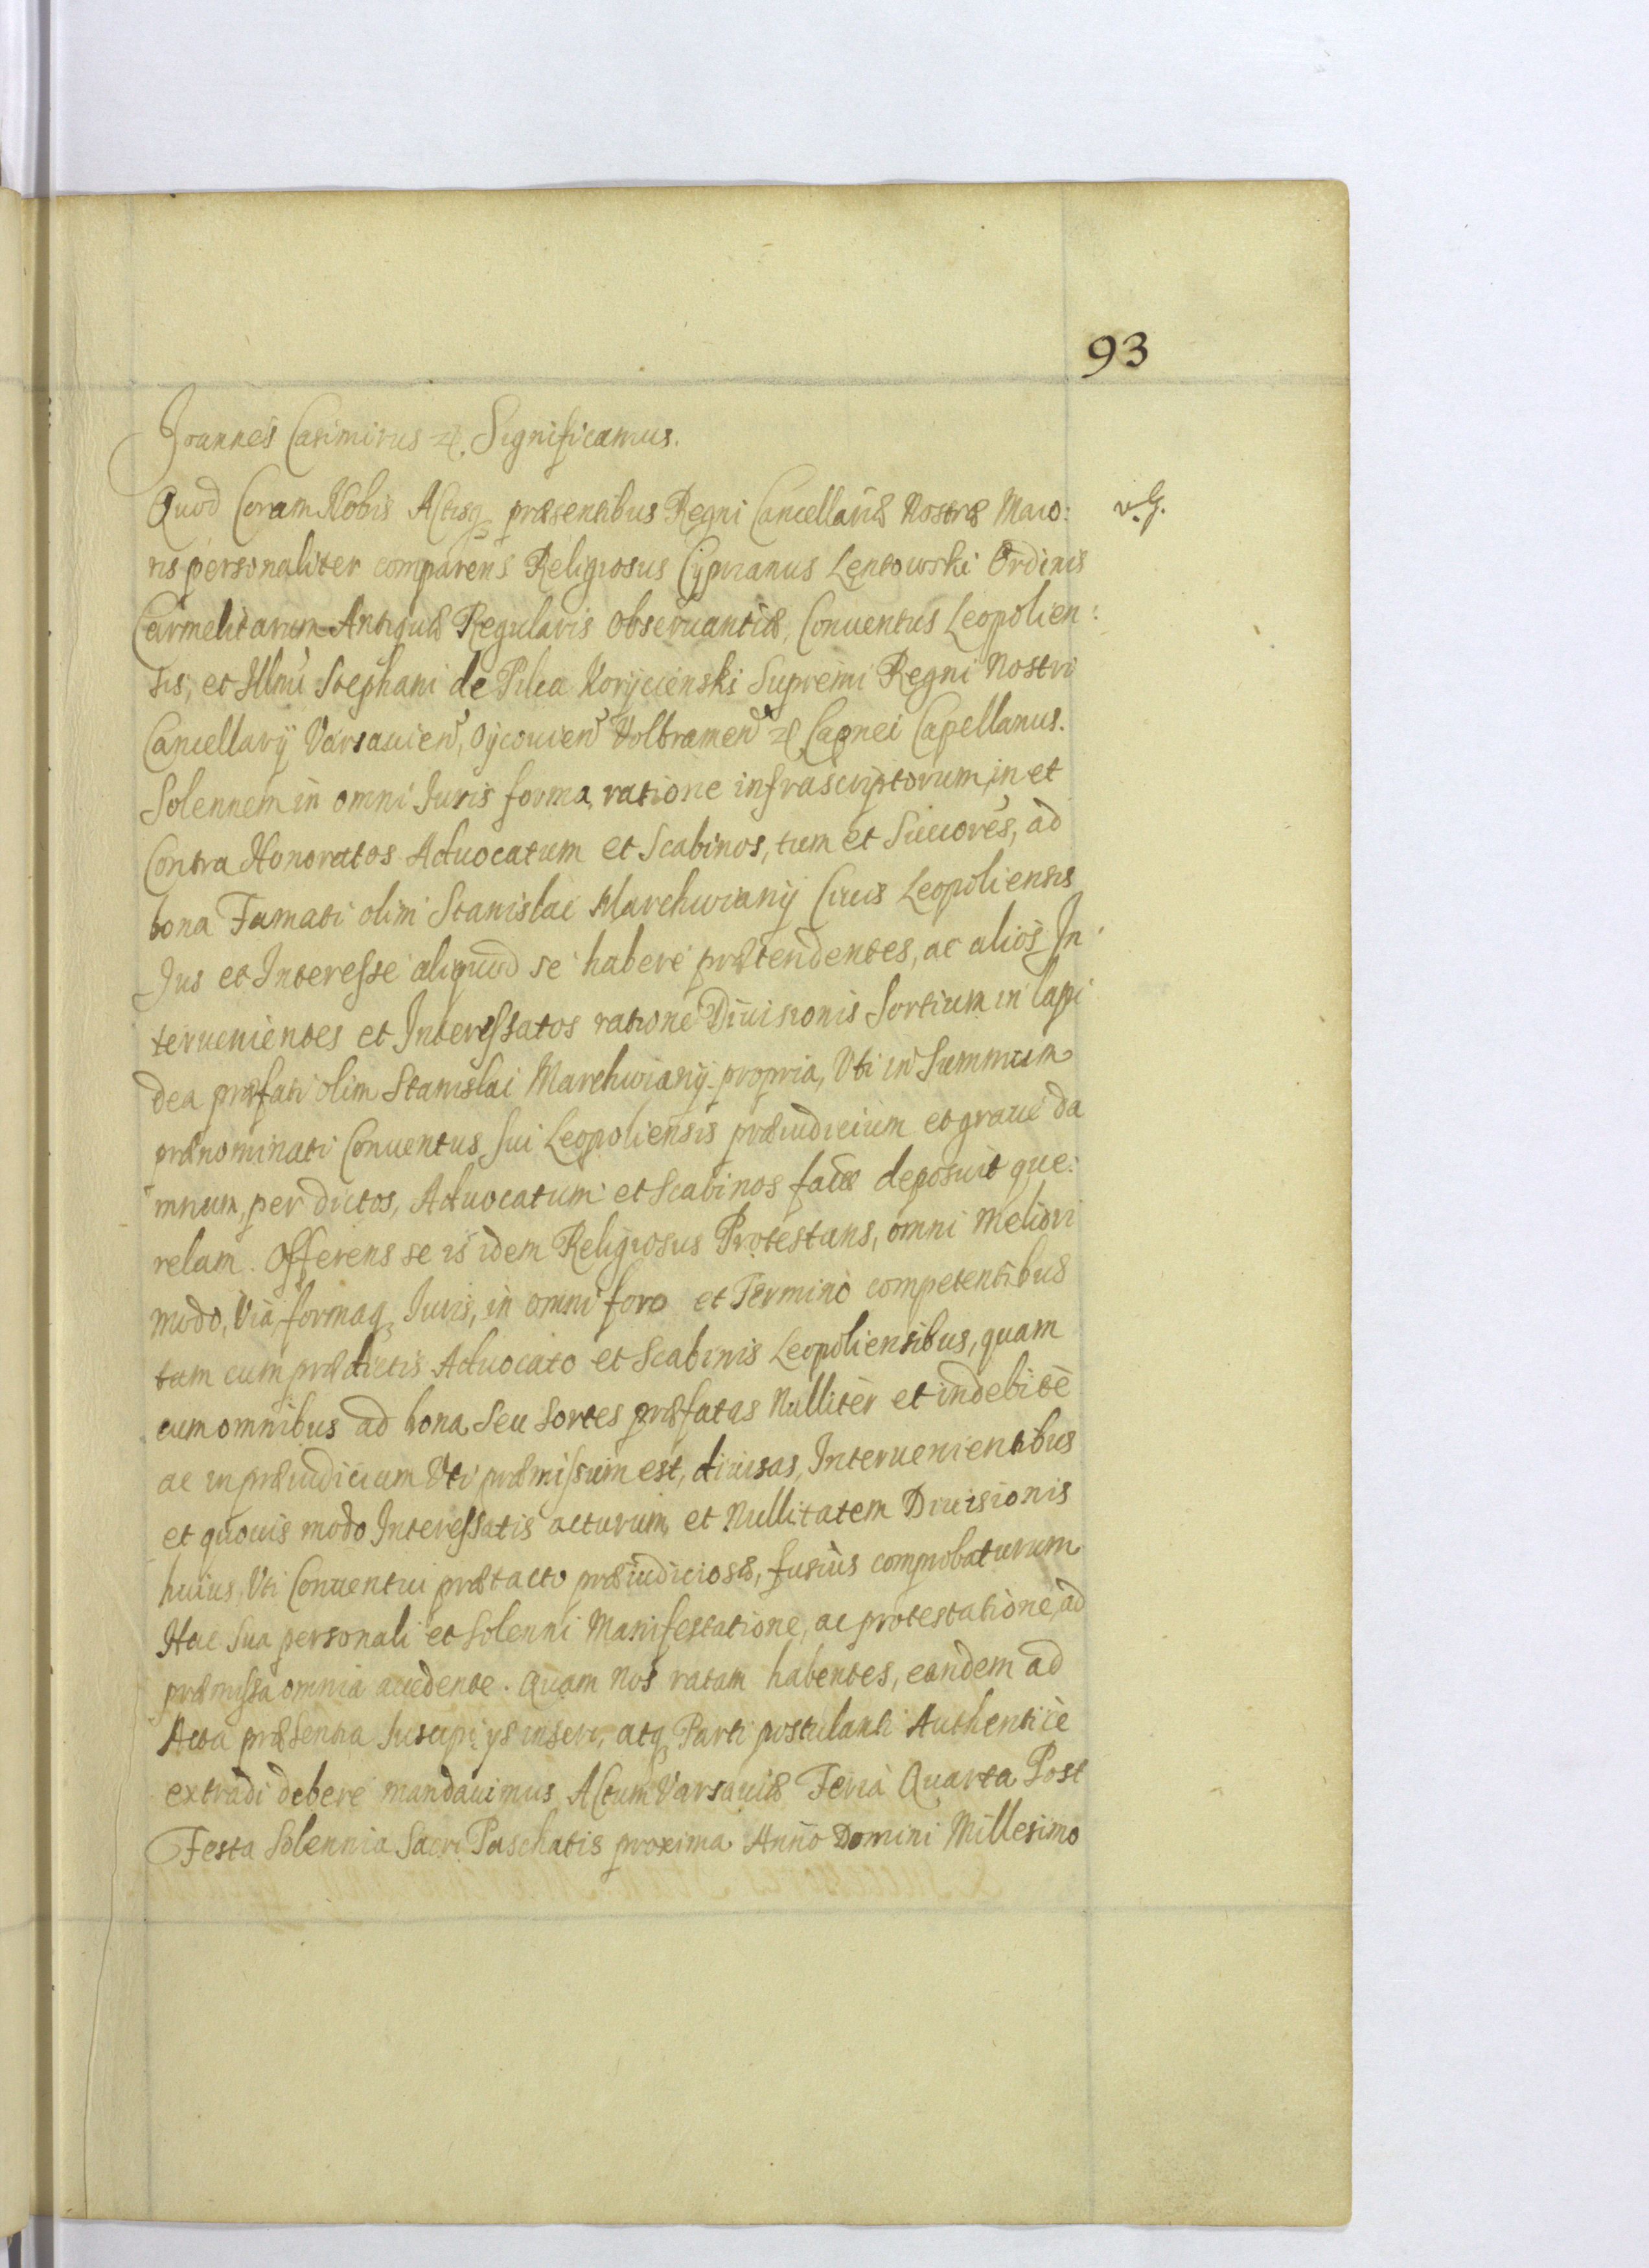 93
Joannes Casimirus &. Significamus.
Quod Coram Nobis Actisq præsentibus Regni Cancellariæ Nostræ Maio:
v. G.
ris personaliter comparens Religiosus Cyprianus Lentowski Ordinis
Carmelitarum Antiquæ Regularis Obseruantiæ, Conuentus Leopolien:
sis, et Illmi Stephani de Pilca Korycienski Supremi Regni Nostri
Cancellarij Varsauien, Oycouien Volbramen & Capnei Capellanus.
Solennem in omni Iuris forma, ratione infrascriptorum, in et
Contra Honoratos Aduocatum et Scabinos, tum et Succores, ad
bona Famati olim Stanislai Marchwiany Ciuis Leopoliensis
Jus et Interesse aliquod se habere prætendentes, ac alios In:
teruenientes et Interessatos ratione Diuisionis Sortium in lapi
dea præfati olim Stanislai Marchwiany propria, Vti in Summum
prænominati Conuentus sui Leopoliensis præiudicium et graue da
mnum, per dictos, Aduocatum et Scabinos factæ deposuit que:
relam. Offerens se is idem Religiosus Protestans, omni Meliori
modo, Via, formaq Iuris, in omni foro et Termino competentibus
tam cum prædictis Aduocato et Scabinis Leopoliensibus, quam
cum omnibus ad bona Seu Sortes præfatas Nulliter et indebitè
ac in præiudicium Vti præmissum est, diuisas, Interuenientibus
et quouis modo Interessatis acturum, et Nullitatem Diuisionis
huius, Vti Conuentui prætacto præiudiciosæ, fusius comprobaturum
Hac Sua personali et Solenni Manifestatione, ac protestatione, ad
præmissa omnia accedente. Quam Nos ratam habentes, eandem ad
Acta præsentia suscipi, ys inseri, atq Parti postulanti Authenticè
extradi debere mandauimus Actum Varsauiæ Feria Quarta Post
Festa Solennia Sacri Paschatis proxima Anno Domini Millesimo